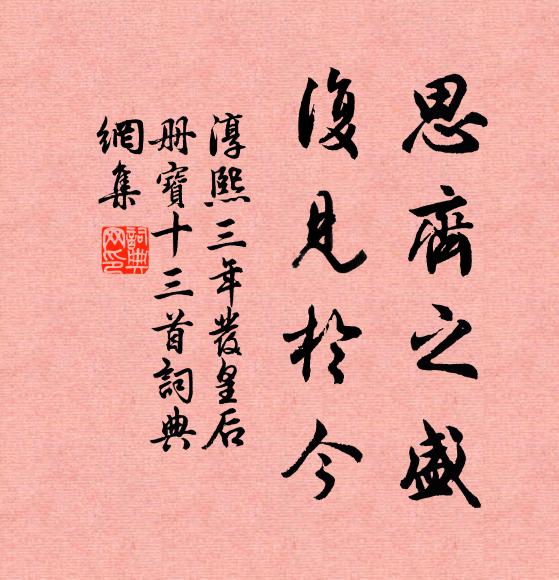 思齊之盛
復見於今
淳熙三年發皇后
册寶十三首詞典
網集
詞典網印